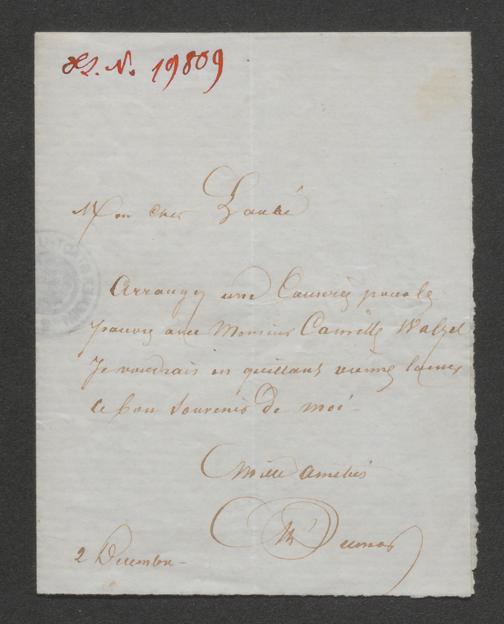 Hs. N. 19809
Mon cher Laubé
Arrangez une Causerie pour les
pauvres avec Monsieur Camille Walzel
Je voudrais en quittant vienne laisser
ce bon souvenir de moi
Mille amitiés
Dumas
2 Decembre